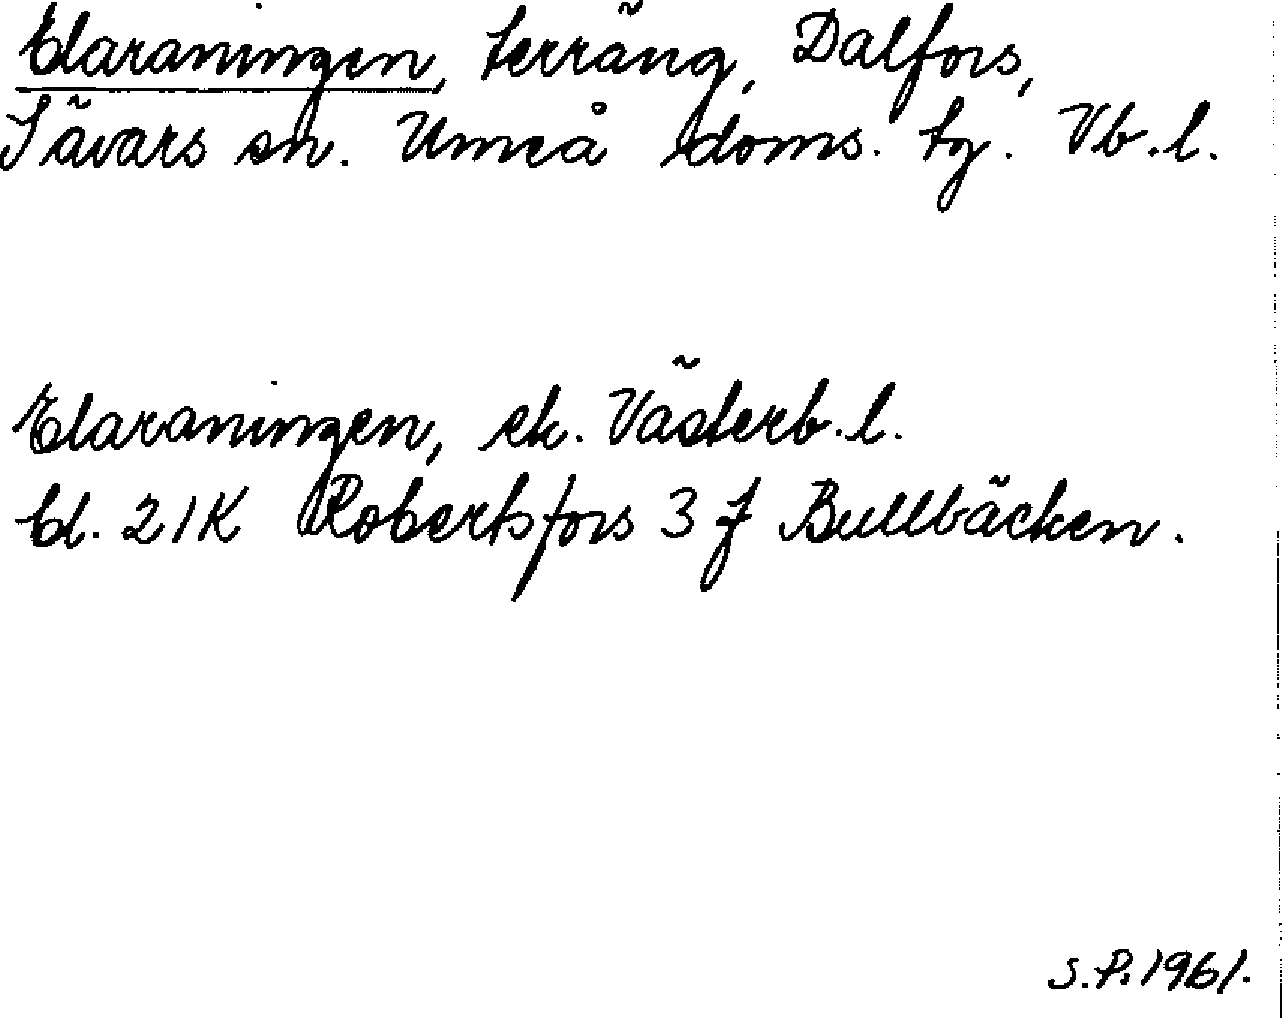 Elaraningen, terräng, Dalfors,
Sävars sn. Umeå doms. tg. Vb.l.
Elaraningen, ek. Västerb.l.
bl. 21K Robertsfors 3 f Bullbäcken.
S.P. 1961.